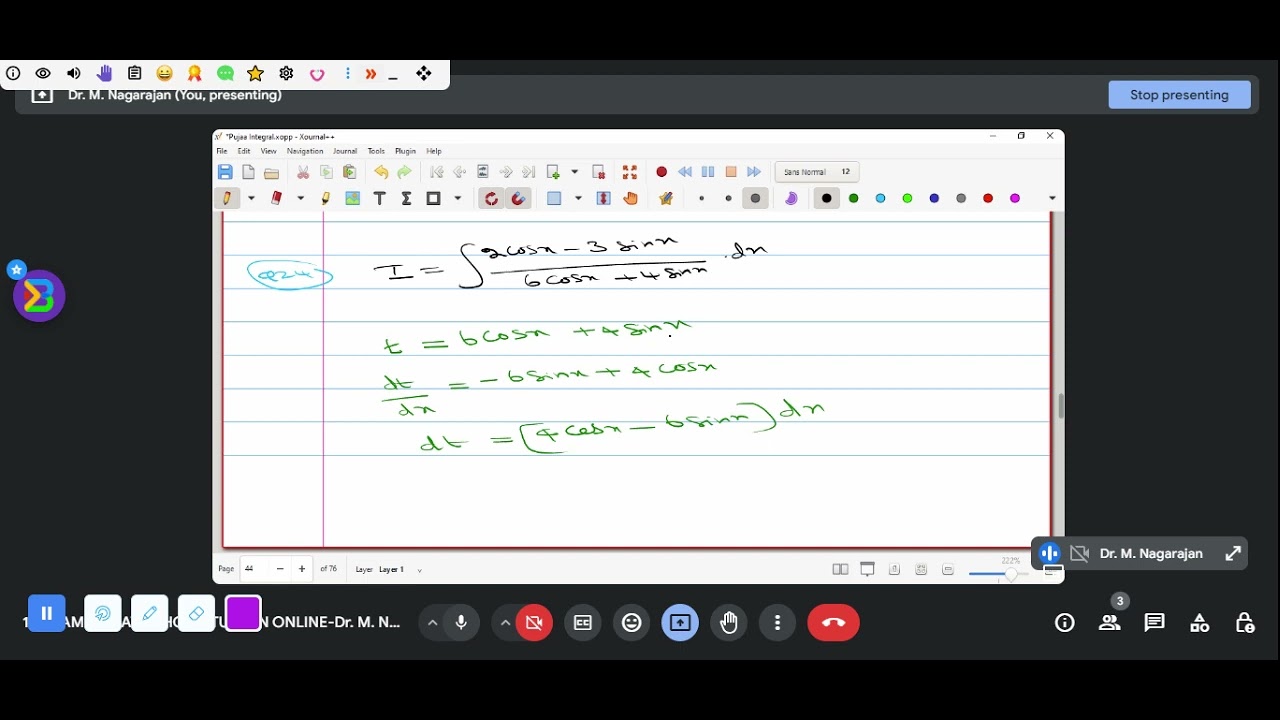 Dr. M. Nagarajan (You, presenting)
Stop presenting
*Pujaa Integral.xopp - Xournal++
File Edit View Navigation Journal Tools Plugin Help
Sans Normal 12
Q24) I = ∫ (2cosx - 3 sinx)/(6cosx + 4 sinx) . dx
t = 6cosx + 4 sinx
dt/dx = - 6 sinx + 4 cosx
dt = (4 cosx - 6 sinx) dx
Page 44 - + of 76 Layer Layer 1
222%
Dr. M. Nagarajan
3
ONLINE-Dr. M. N...